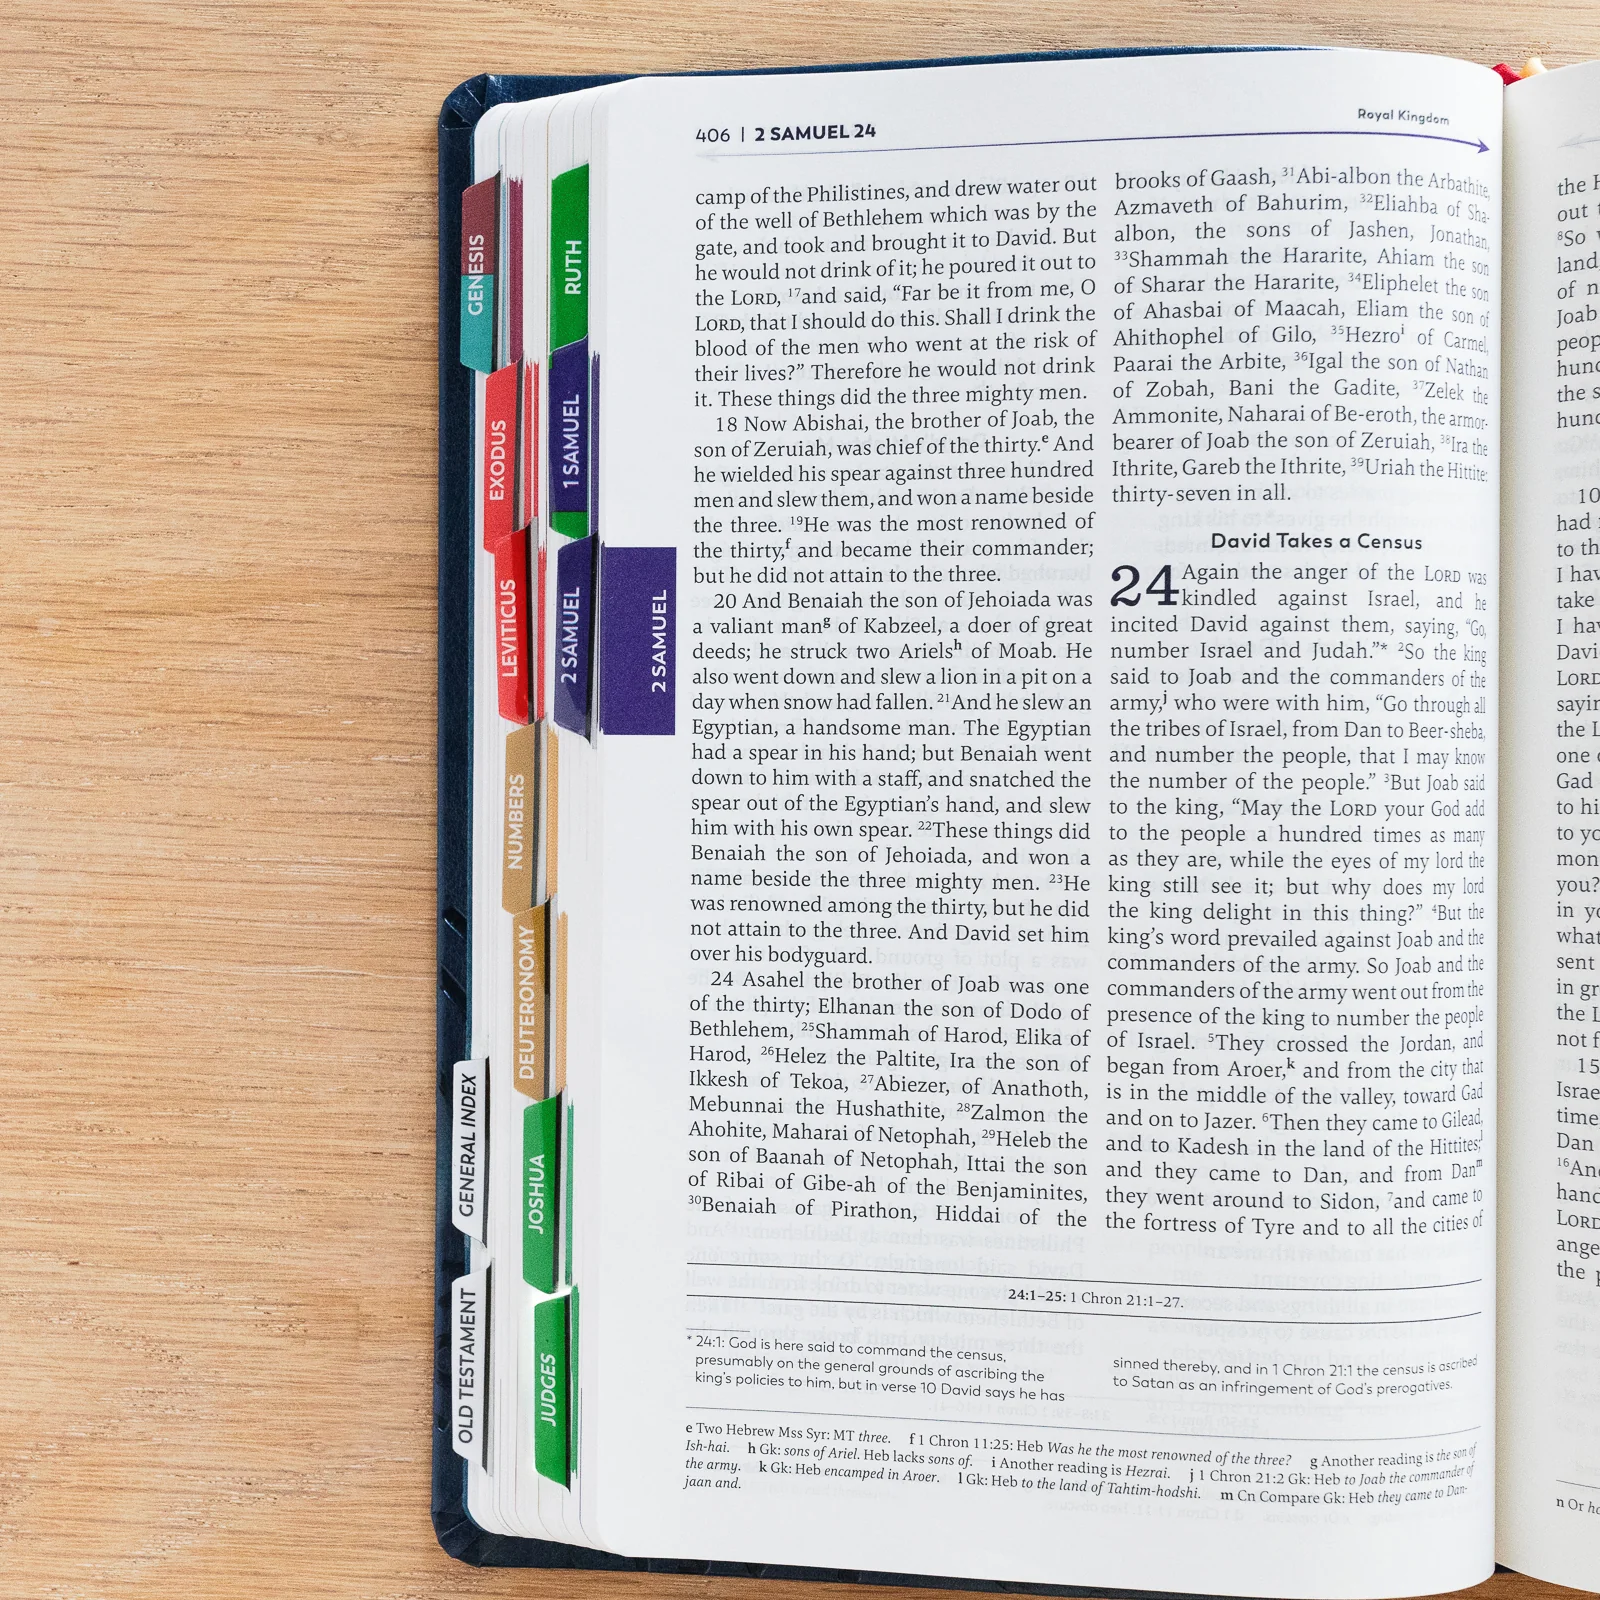 406 | 2 SAMUEL 24
Royal Kingdom
camp of the Philistines, and drew water out
of the well of Bethlehem which was by the
gate, and took and brought it to David. But
he would not drink of it; he poured it out to
the LORD, 17and said, “Far be it from me, O
LORD, that I should do this. Shall I drink the
blood of the men who went at the risk of
their lives?” Therefore he would not drink
it. These things did the three mighty men.
18 Now Abishai, the brother of Joab, the
son of Zeruiah, was chief of the thirty.e And
he wielded his spear against three hundred
men and slew them, and won a name beside
the three. 19He was the most renowned of
the thirty,f and became their commander;
but he did not attain to the three.
20 And Benaiah the son of Jehoiada was
a valiant mang of Kabzeel, a doer of great
deeds; he struck two Arielsh of Moab. He
also went down and slew a lion in a pit on a
day when snow had fallen. 21And he slew an
Egyptian, a handsome man. The Egyptian
had a spear in his hand; but Benaiah went
down to him with a staff, and snatched the
spear out of the Egyptian’s hand, and slew
him with his own spear. 22These things did
Benaiah the son of Jehoiada, and won a
name beside the three mighty men. 23He
was renowned among the thirty, but he did
not attain to the three. And David set him
over his bodyguard.
24 Asahel the brother of Joab was one
of the thirty; Elhanan the son of Dodo of
Bethlehem, 25Shammah of Harod, Elika of
Harod, 26Helez the Paltite, Ira the son of
Ikkesh of Tekoa, 27Abiezer, of Anathoth,
Mebunnai the Hushathite, 28Zalmon the
Ahohite, Maharai of Netophah, 29Heleb the
son of Baanah of Netophah, Ittai the son
of Ribai of Gibe-ah of the Benjaminites,
30Benaiah of Pirathon, Hiddai of the
brooks of Gaash, 31Abi-albon the Arbathite,
Azmaveth of Bahurim, 32Eliahba of Sha-
albon, the sons of Jashen, Jonathan,
33Shammah the Hararite, Ahiam the son
of Sharar the Hararite, 34Eliphelet the son
of Ahasbai of Maacah, Eliam the son of
Ahithophel of Gilo, 35Hezroi of Carmel,
Paarai the Arbite, 36Igal the son of Nathan
of Zobah, Bani the Gadite, 37Zelek the
Ammonite, Naharai of Be-eroth, the armor-
bearer of Joab the son of Zeruiah, 38Ira the
Ithrite, Gareb the Ithrite, 39Uriah the Hittite:
thirty-seven in all.
David Takes a Census
24 Again the anger of the LORD was
kindled against Israel, and he
incited David against them, saying, “Go,
number Israel and Judah.”* 2So the king
said to Joab and the commanders of the
army,j who were with him, “Go through all
the tribes of Israel, from Dan to Beer-sheba,
and number the people, that I may know
the number of the people.” 3But Joab said
to the king, “May the LORD your God add
to the people a hundred times as many
as they are, while the eyes of my lord the
king still see it; but why does my lord
the king delight in this thing?” 4But the
king’s word prevailed against Joab and the
commanders of the army. So Joab and the
commanders of the army went out from the
presence of the king to number the people
of Israel. 5They crossed the Jordan, and
began from Aroer,k and from the city that
is in the middle of the valley, toward Gad
and on to Jazer. 6Then they came to Gilead,
and to Kadesh in the land of the Hittites;l
and they came to Dan, and from Danm
they went around to Sidon, 7and came to
the fortress of Tyre and to all the cities of
24:1–25: 1 Chron 21:1–27.
* 24:1: God is here said to command the census,
presumably on the general grounds of ascribing the
king’s policies to him, but in verse 10 David says he has
sinned thereby, and in 1 Chron 21:1 the census is ascribed
to Satan as an infringement of God’s prerogatives.
e Two Hebrew Mss Syr: MT three. f 1 Chron 11:25: Heb Was he the most renowned of the three? g Another reading is the son of
Ish-hai. h Gk: sons of Ariel. Heb lacks sons of. i Another reading is Hezrai. j 1 Chron 21:2 Gk: Heb to Joab the commander of
the army. k Gk: Heb encamped in Aroer. l Gk: Heb to the land of Tahtim-hodshi. m Cn Compare Gk: Heb they came to Dan-
jaan and.
GENESIS
EXODUS
LEVITICUS
NUMBERS
DEUTERONOMY
JOSHUA
JUDGES
RUTH
1 SAMUEL
2 SAMUEL
2 SAMUEL
GENERAL INDEX
OLD TESTAMENT
the
out
8So
land,
of
Joab
the
10
had
to th
I hav
take
I hav
Davi
LORD
sayin
the L
one
Gad
to hi
to yo
mon
you?
in yo
what
sent
in gr
the L
not f
15
Israe
time
Dan
16An
hand
LORD
ange
the
n Or